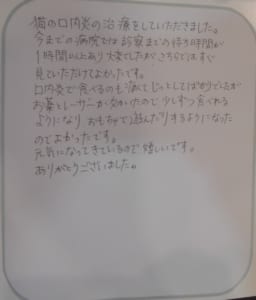 猫の口内炎の治療をしていただきました。
今までの病院では診察までの待ち時間が
1時間以上あり大変でしたがこちらではすぐ
見ていただけてよかったです。
口内炎で食べるのも痛くてじっとしてばかりでしたが
お薬とレーザーが効いたので少しずつ食べれる
ようになりおもちゃで遊んだりするようになった
のでよかったです。
元気になってきているので嬉しいです。
ありがとうございました。